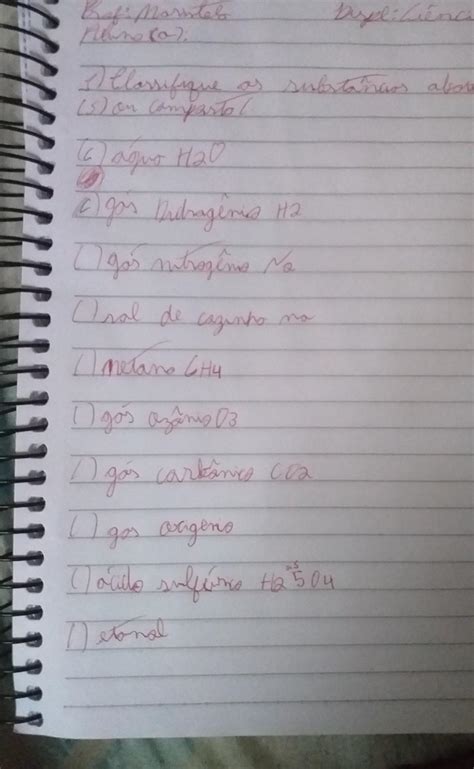 Prof: Marистela Displ: Ciênc
Aluno(a):
1) Classifique as substâncias abaix
(S) ou composto (
(C) água H2O
(C) gás hidragênio H2
( ) gás nitrogênio N2
( ) sal de cozinha na
( ) metano CH4
( ) gás ozônio O3
( ) gás carbônico CO2
( ) gas oxigeno
( ) ácido sulfúrico H2SO4
( ) etanol